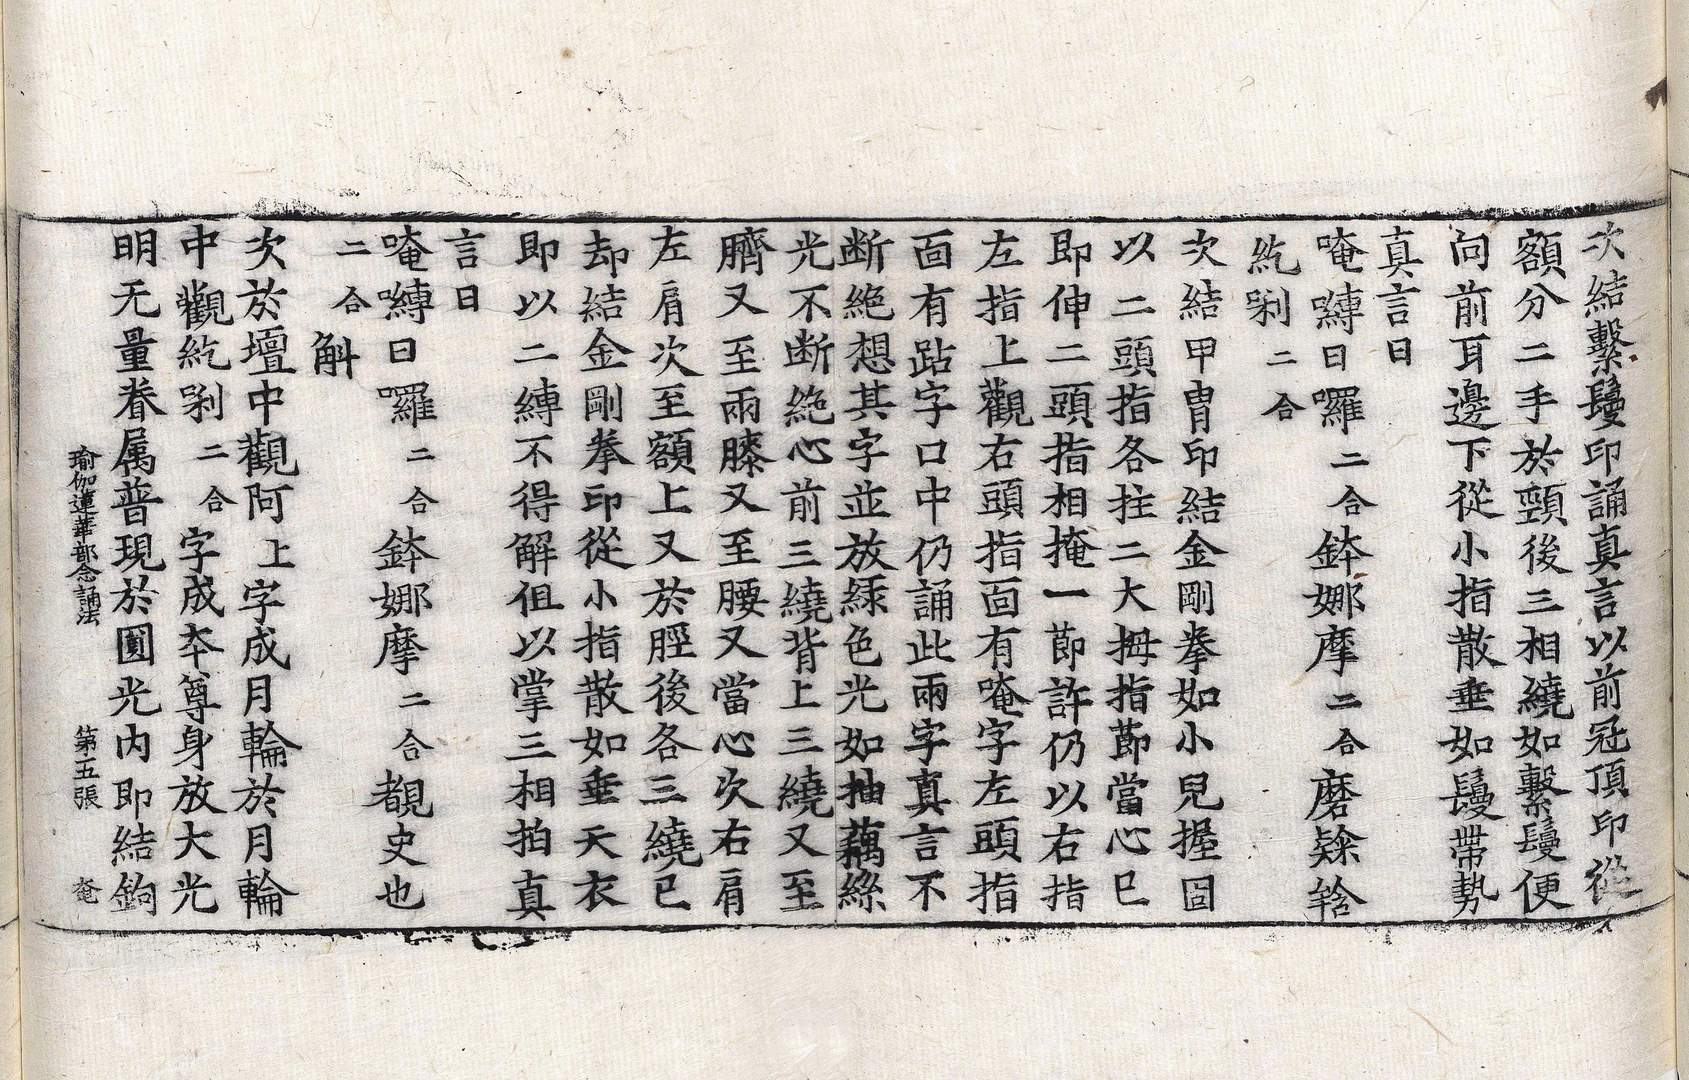 次結繫鬘印誦真言以前冠頂印從
額分二手於頸後三相繞如繫鬘便
向前耳邊下從小指散垂如鬘帶勢
真言曰
唵嚩日囉二合鉢娜摩二合磨𨏍
紇哩二合
次結甲冑印結金剛拳如小兒握固
以二頭指各拄二大拇指莭當心已
即伸二頭指相掩一莭許仍以右指
左指上觀右頭指面有唵字左頭指
面有跕字口中仍誦此兩字真言不
断絶想其字並放緑色光如抽藕絲
光不断絶心前三繞背上三繞又至
臍又至兩膝又至腰又當心次右肩
左肩次至額上又於脛後各三繞已
却結金剛拳印從小指散如垂天衣
即以二縛不得解但以掌三相拍真
言曰
唵嚩日囉二合鉢娜摩二合覩史也
二合斛
次於壇中觀阿上字成月輪於月輪
中觀紇哩二合字成夲尊身放大光
明无量眷属普現於圓光内即結鉤
瑜伽蓮華部念誦法 第五張